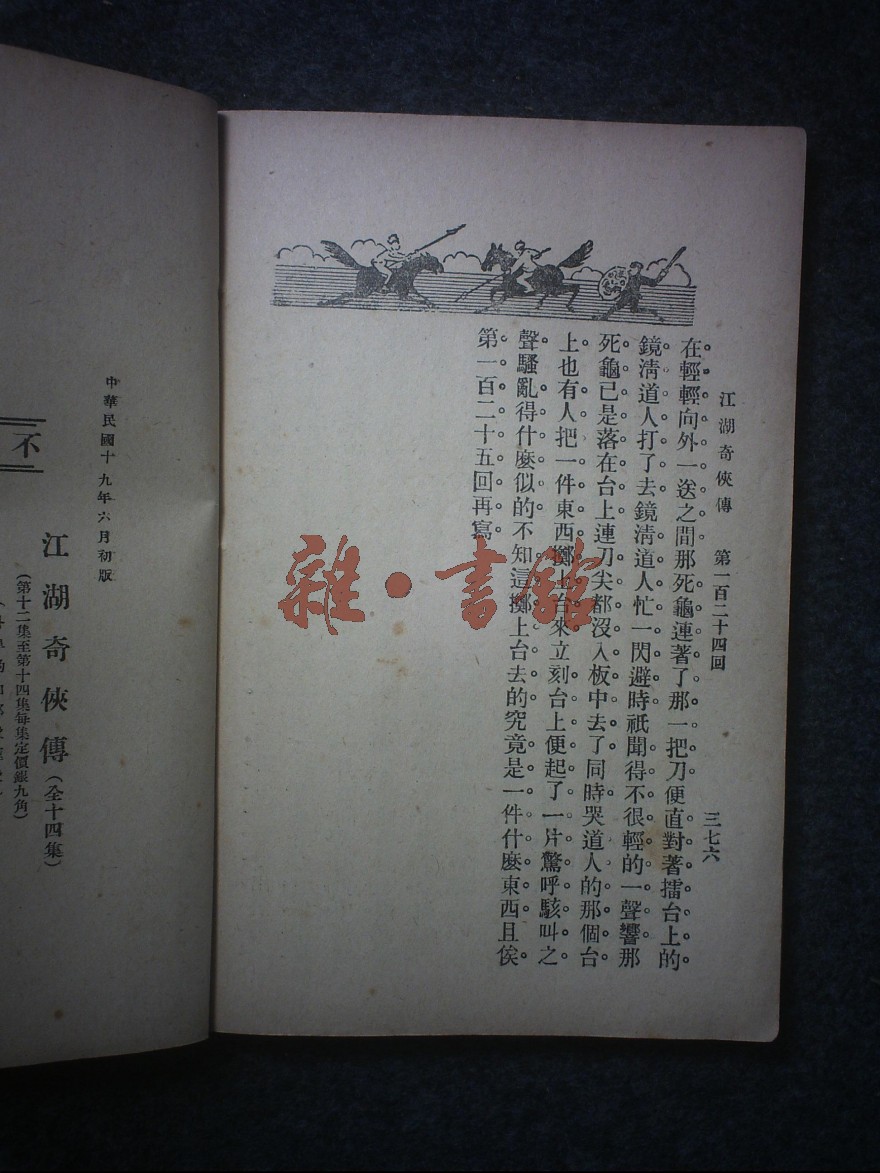 江湖奇俠傳　第一百二十四回　三七六
在輕輕向外一送之間。那死龜連著了那一把刀。便直對著擂台上的
鏡淸道人打了去。鏡淸道人忙一閃避時。祇聞得不很輕的一聲響。那
死龜已是落在台上。連刀尖都沒入板中去了。同時哭道人的那個台
上。也有人把一件東西擲上台來。立刻台上便起了一片驚呼駭叫之
聲。騷亂得什麼似的。不知這擲上台去的。究竟是一件什麼東西。且俟
第一百二十五回再寫。
中華民國十九年六月初版
不
江湖奇俠傳（全十四集）
（第十二集至第十四集每集定價銀九角）
雜・書館